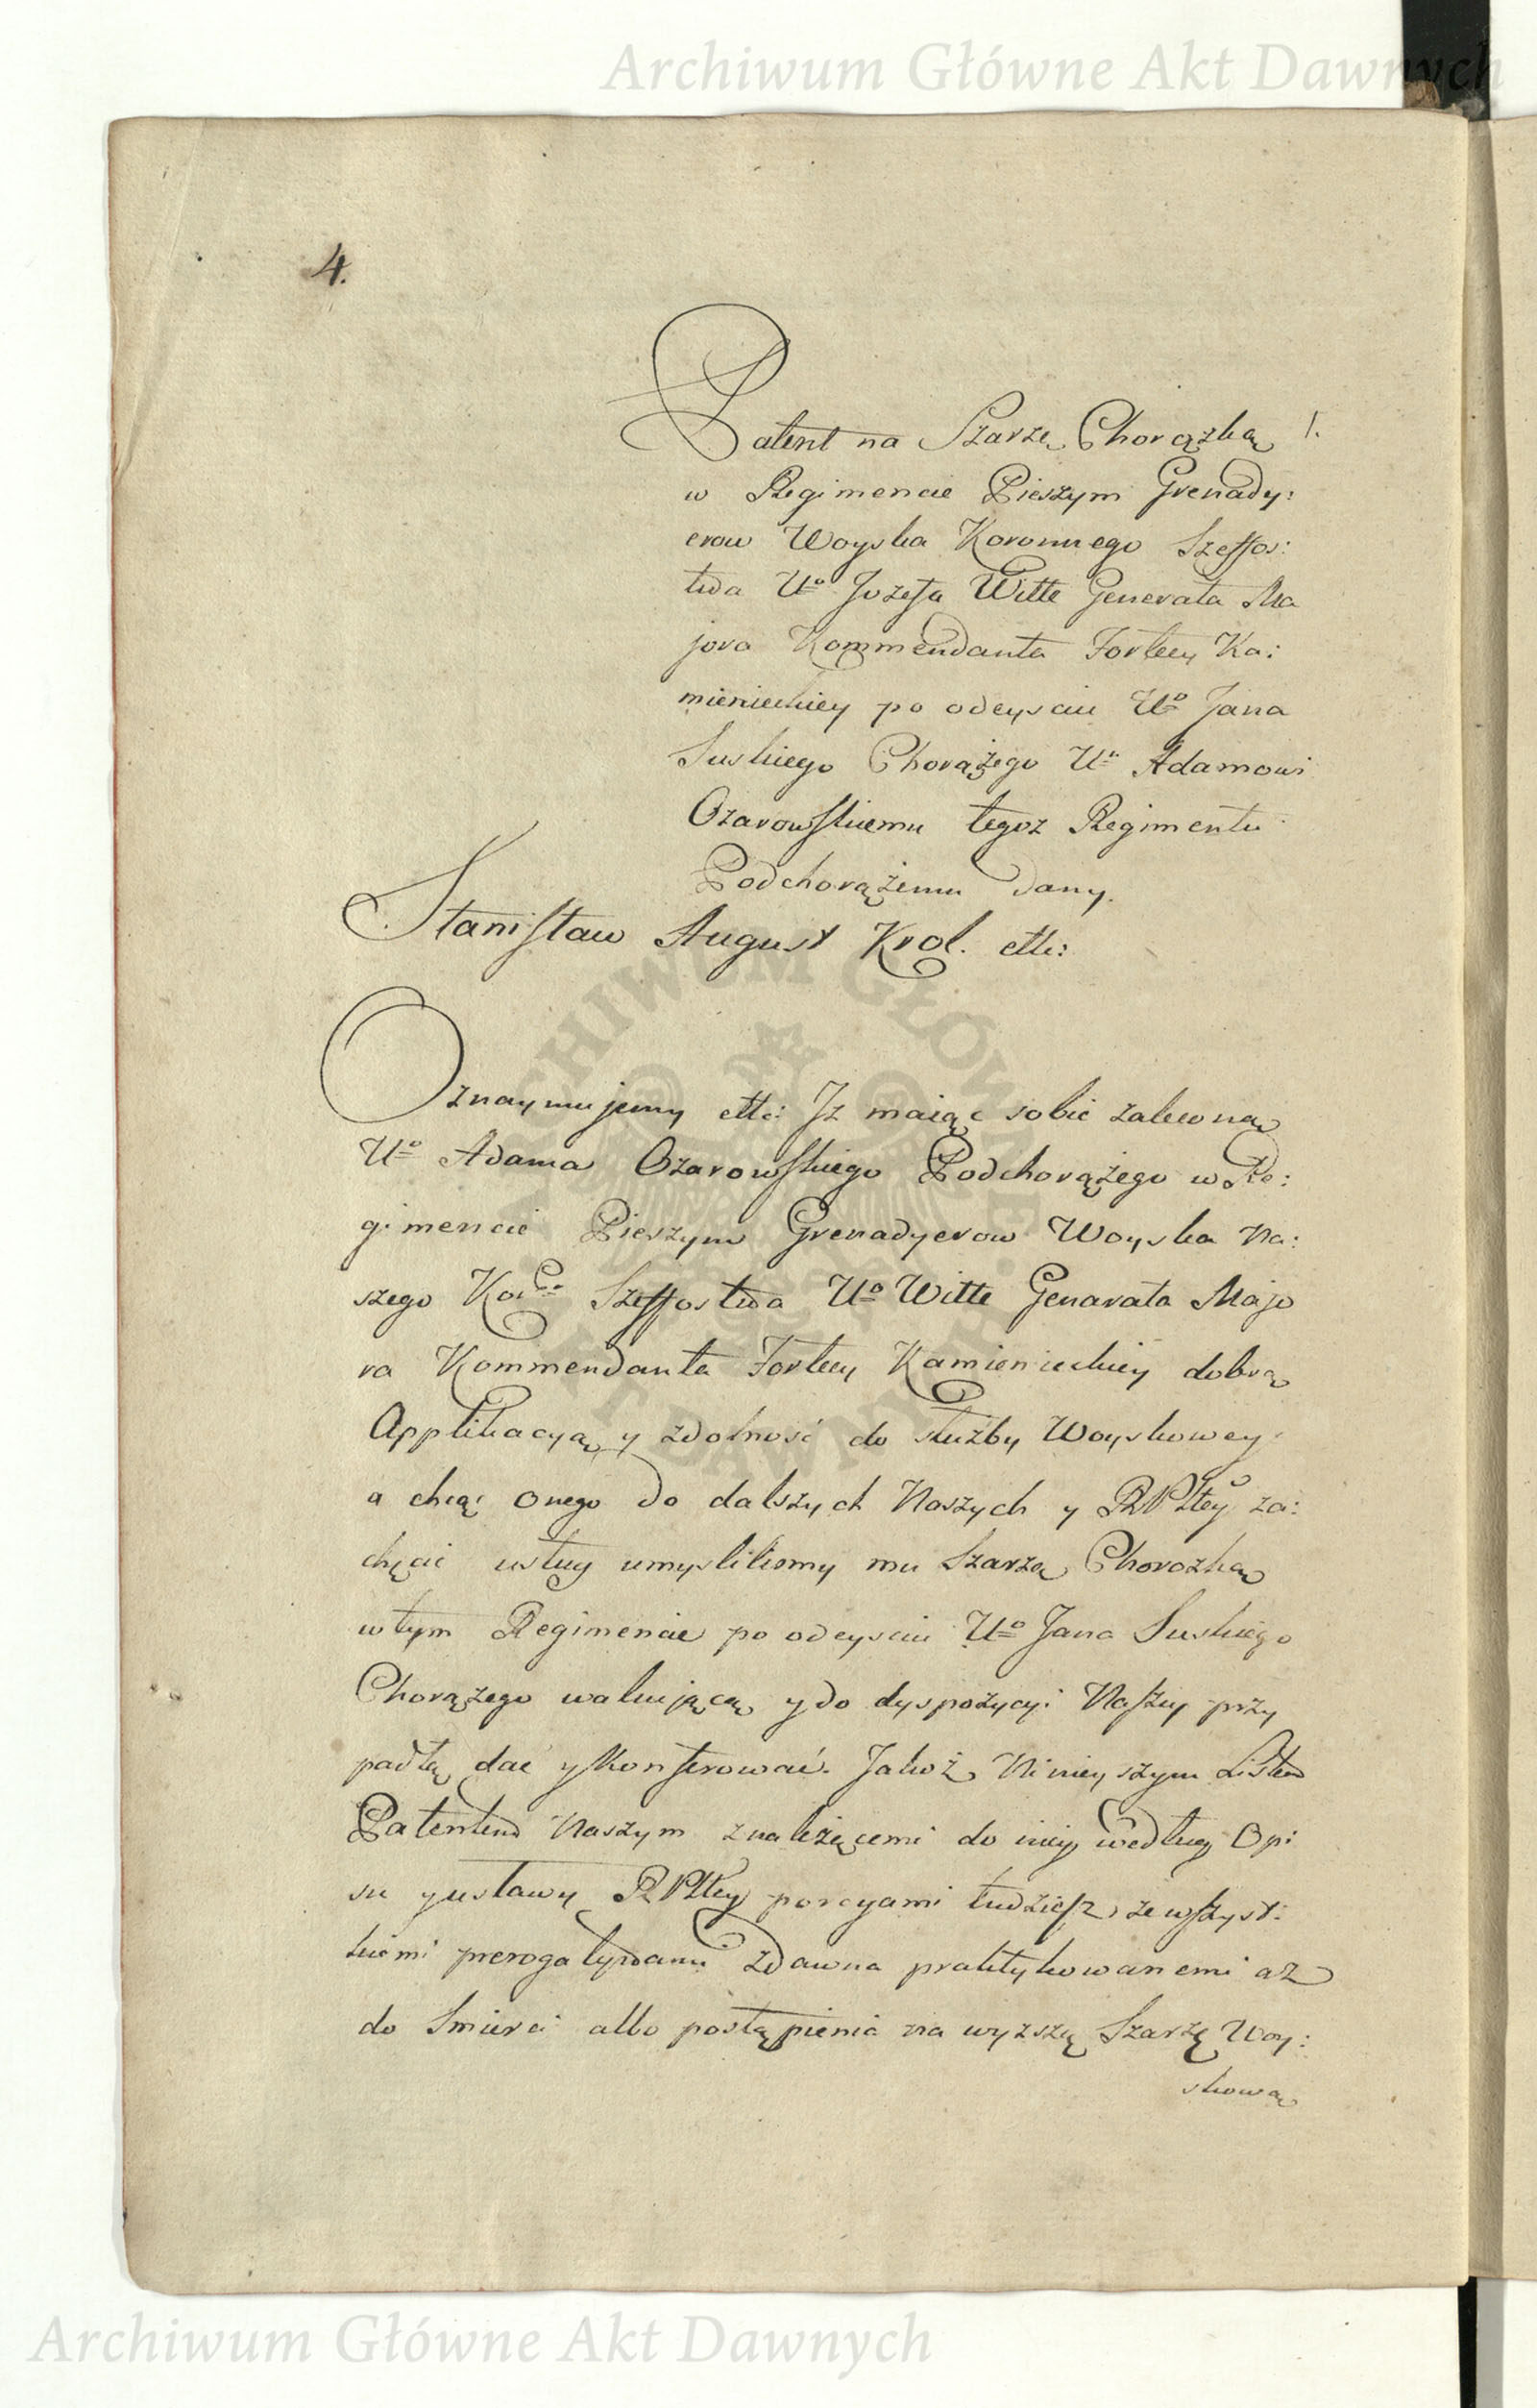 Archiwum Główne Akt Dawnych
4.
Patent na Szarżę Chorążką 1.
w Regimencie Pieszym Grenady:
erow Woyska Koronnego Szeffos:
twa Uº Jozefa Witte Generała Ma
jora Kommendanta Fortecy Ka:
mienieckiey po odeysciu Uº Jana
Suskiego Chorążego Uº Adamowi
Ozarowskiemu tegoz Regimentu
Podchorążemu dany.
Stanisław August Krol. ettc:
Oznaymujemy ettc: Jz maiąc sobie zalecną
Uº Adama Ozarowskiego Podchorążego w Re:
gimencie Pieszym Grenadyerow Woyska Na:
szego Korgo Szeffostwa Uº Witte Generała Majo
ra Kommendanta Fortecy Kamienieckiey dobrą
Applikacyą y zdolność do służby Woyskowey
a chcąc onego do dalszych Naszych y RPltey za:
chęcić usług umyslilismy mu Szarżą Chorozką
w tym Regimencie po odeysciu Uº Jana Suskiego
Chorążego wakującą y do dyspozycyi Naszey przy
padłą dać y Konferować. Jakoż Ninieyszym Listem
Patentem Naszym z należącemi do niey według Opi
su y ustawy RPltey porcyami tudziesz, ze wszyst:
kiemi prerogatywami zdawna praktykowanemi aż
do Smierci albo postąpienia na wyższą Szarżę Woy:
skową
ARCHIWUM GŁÓWNE AKT DAWNYCH
Archiwum Główne Akt Dawnych